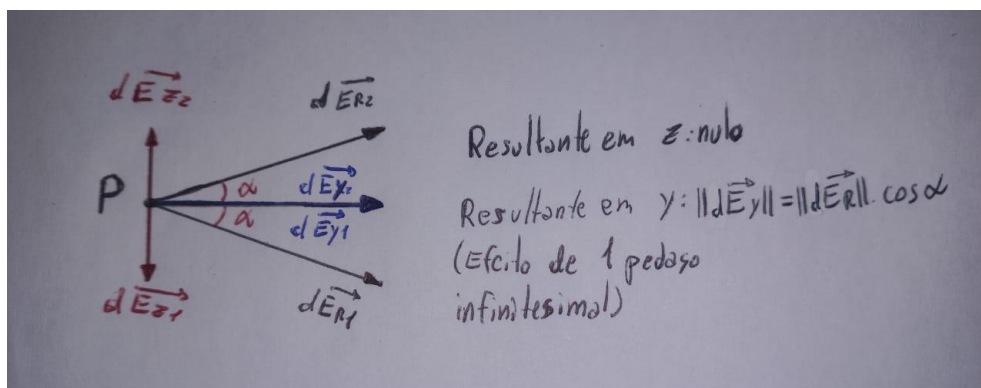 dE⃗z₂
dE⃗R₂
P
α
dE⃗y₂
α
dE⃗y₁
dE⃗z₁
dE⃗R₁
Resultante em z:nulo
Resultante em y: ||dE⃗y|| = ||dE⃗R||. cosα
(Efeito de 1 pedaço
infinitesimal)